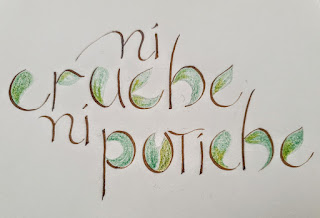 ni
cruche
ni
potiche